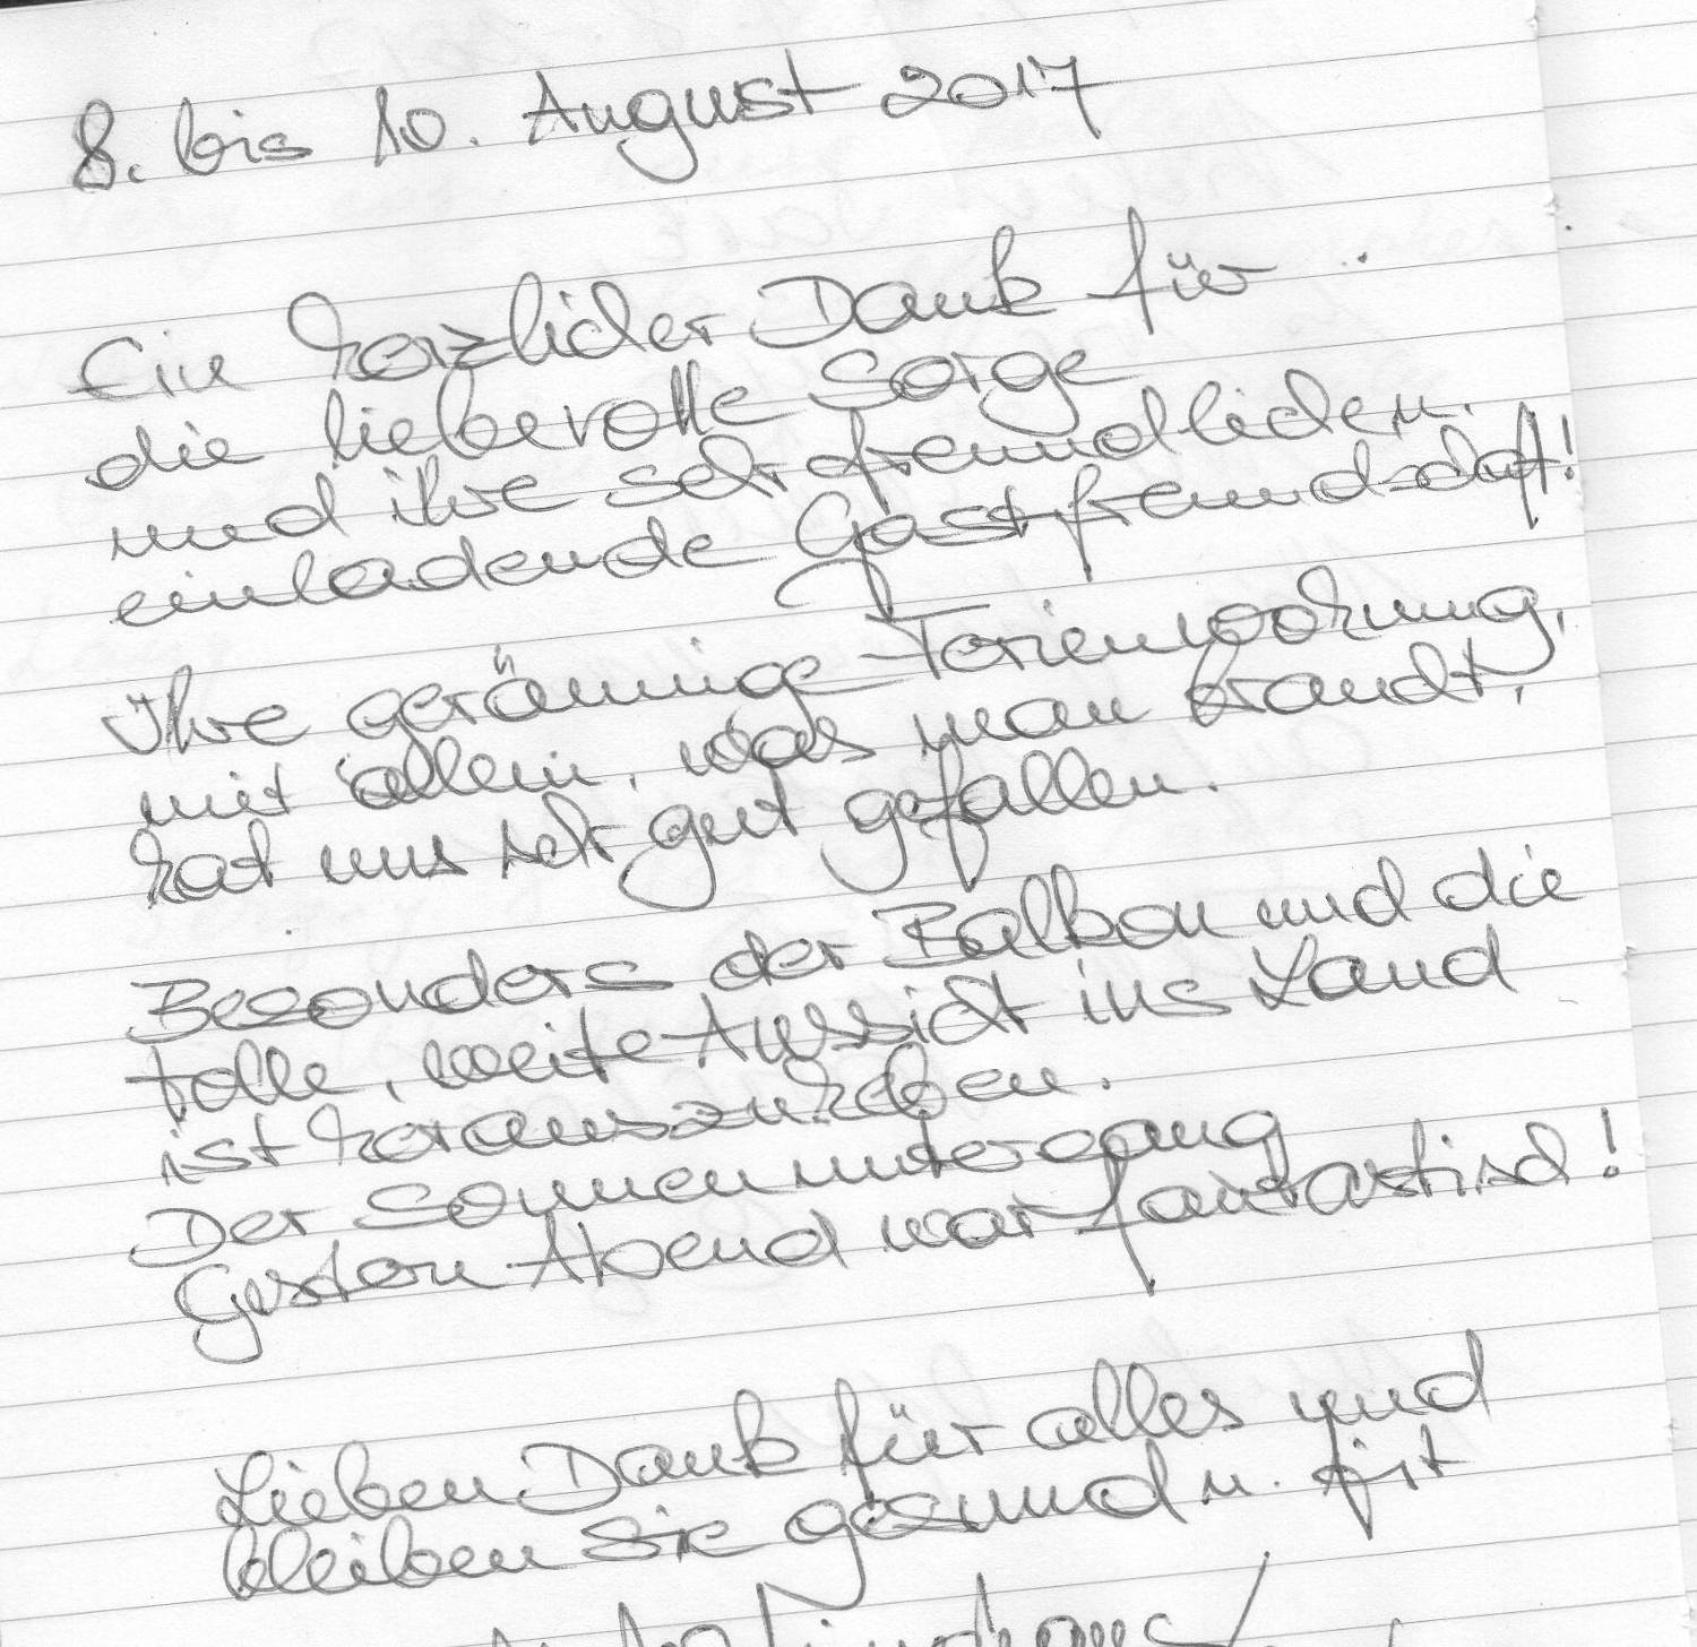 8. bis 10. August 2017
Ein herzlicher Dank für
die liebevolle Sorge
und ihre sehr freundliche u.
einladende Gastfreundschaft!
Ihre geräumige Ferienwohnung,
mit allem, was man braucht,
hat uns sehr gut gefallen.
Besonders der Balkon und die
tolle, weite Aussicht ins Land
ist herauszuheben.
Der Sonnenuntergang
Gestern Abend war fantastisch!
Lieben Dank für alles und
bleiben Sie gesund u. fit